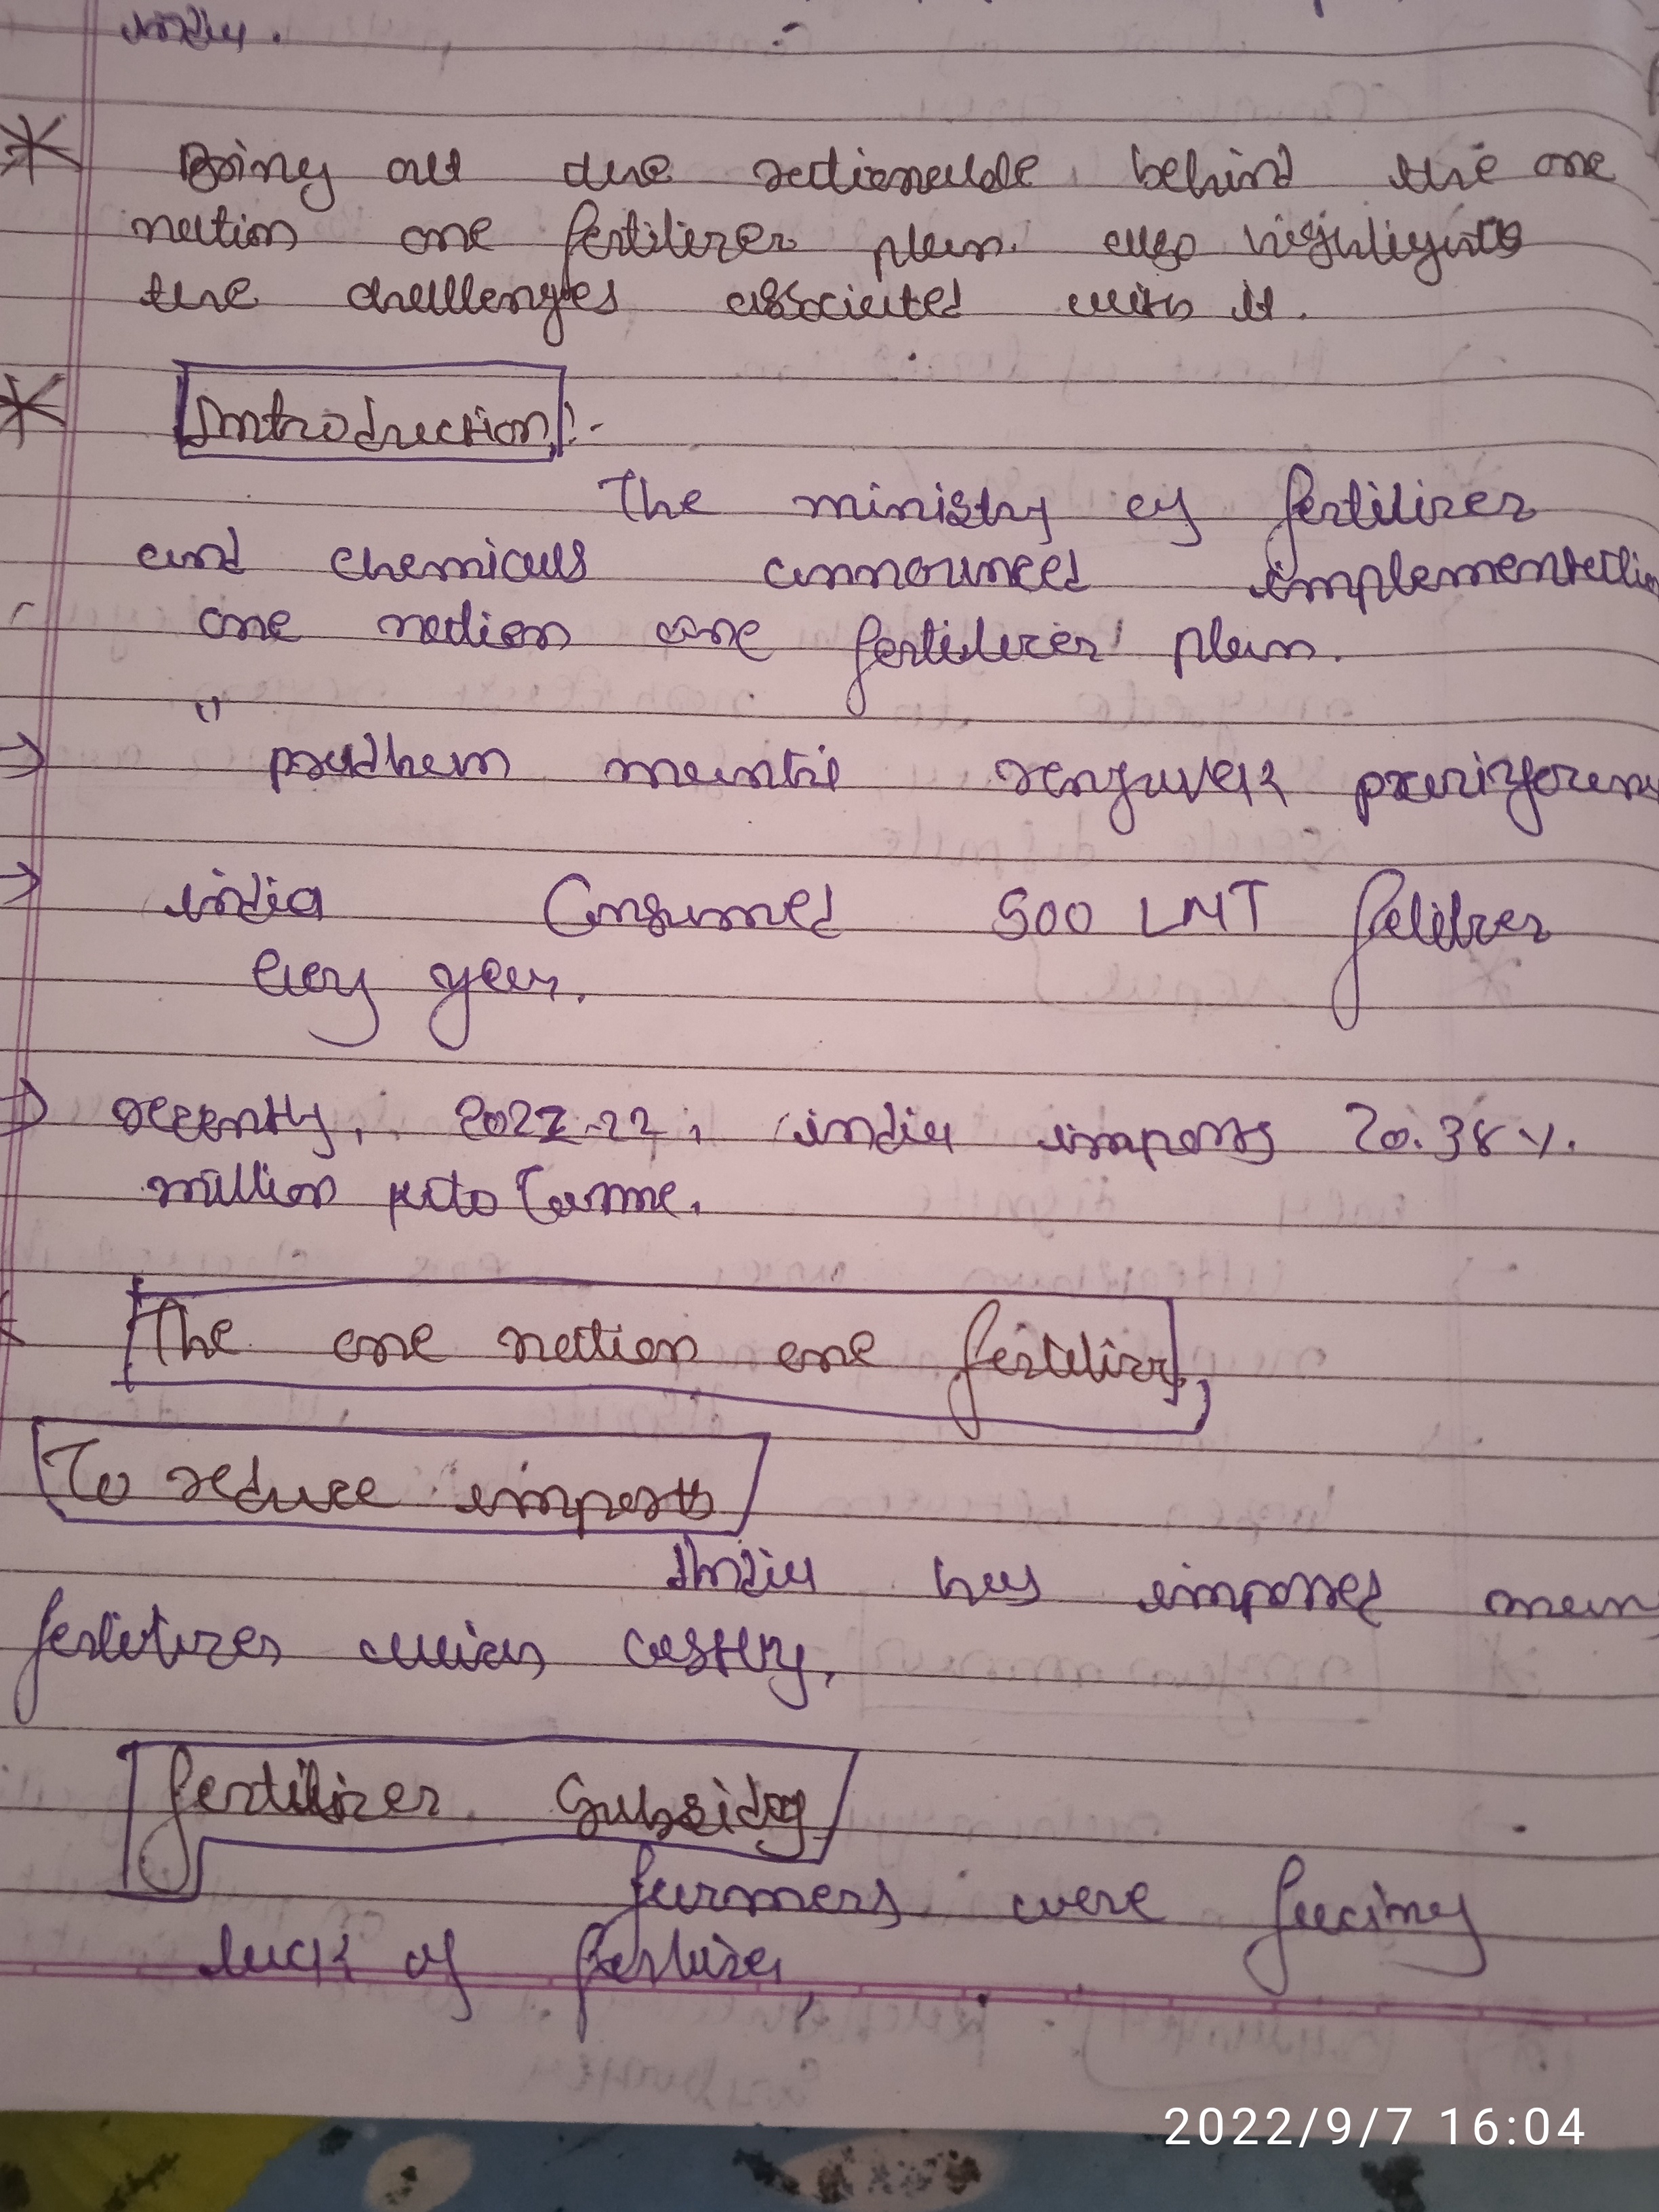 india.
Bring out the rationable behind the one
nation one fertilizer plan. also highlights
the challenges associated with it.
Introduction:-
The ministry of fertilizer
and chemicals announced implementation
one nation one fertilizer plan.
"
pradhan mantri
india Consumed 500 LMT
every year.
recently, 22, india imports 20.38 %.
million
The one nation one fertilizer
To reduce imports
India has imposed many
fertilizer costly.
fertilizer Subsidy
farmers were facing
luck of
2022/9/7 16:04